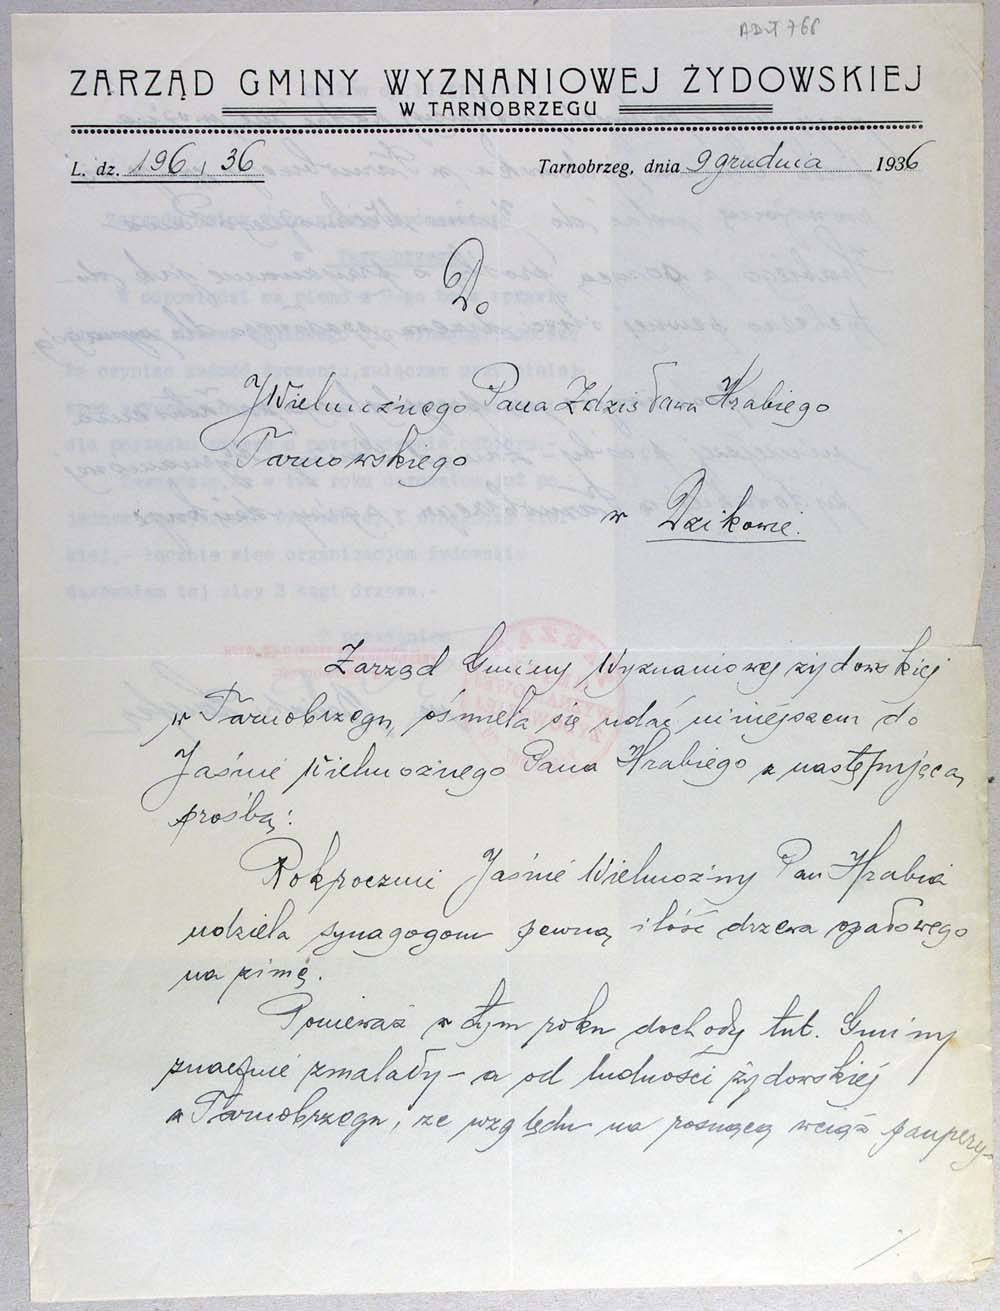 ADzT 768
ZARZĄD GMINY WYZNANIOWEJ ŻYDOWSKIEJ
W TARNOBRZEGU
L. dz. 196 / 36 Tarnobrzeg, dnia 9 grudnia 1936
Do
JWielmożnego Pana Zdzisława Hrabiego
Tarnowskiego
w Dzikowie.
Zarząd Gminy Wyznaniowej żydowskiej
w Tarnobrzegu, ośmiela się udać niniejszem do
Jaśnie Wielmożnego Pana Hrabiego z następującą
prośbą:
Rokrocznie Jaśnie Wielmożny Pan Hrabia
udziela synagogom pewną ilość drzewa opałowego
na zimę.
Ponieważ w tym roku dochody tut. Gminy
znacznie zmalały – a od ludności żydowskiej
w Tarnobrzegu, ze względu na rosnącą wciąż paupery-